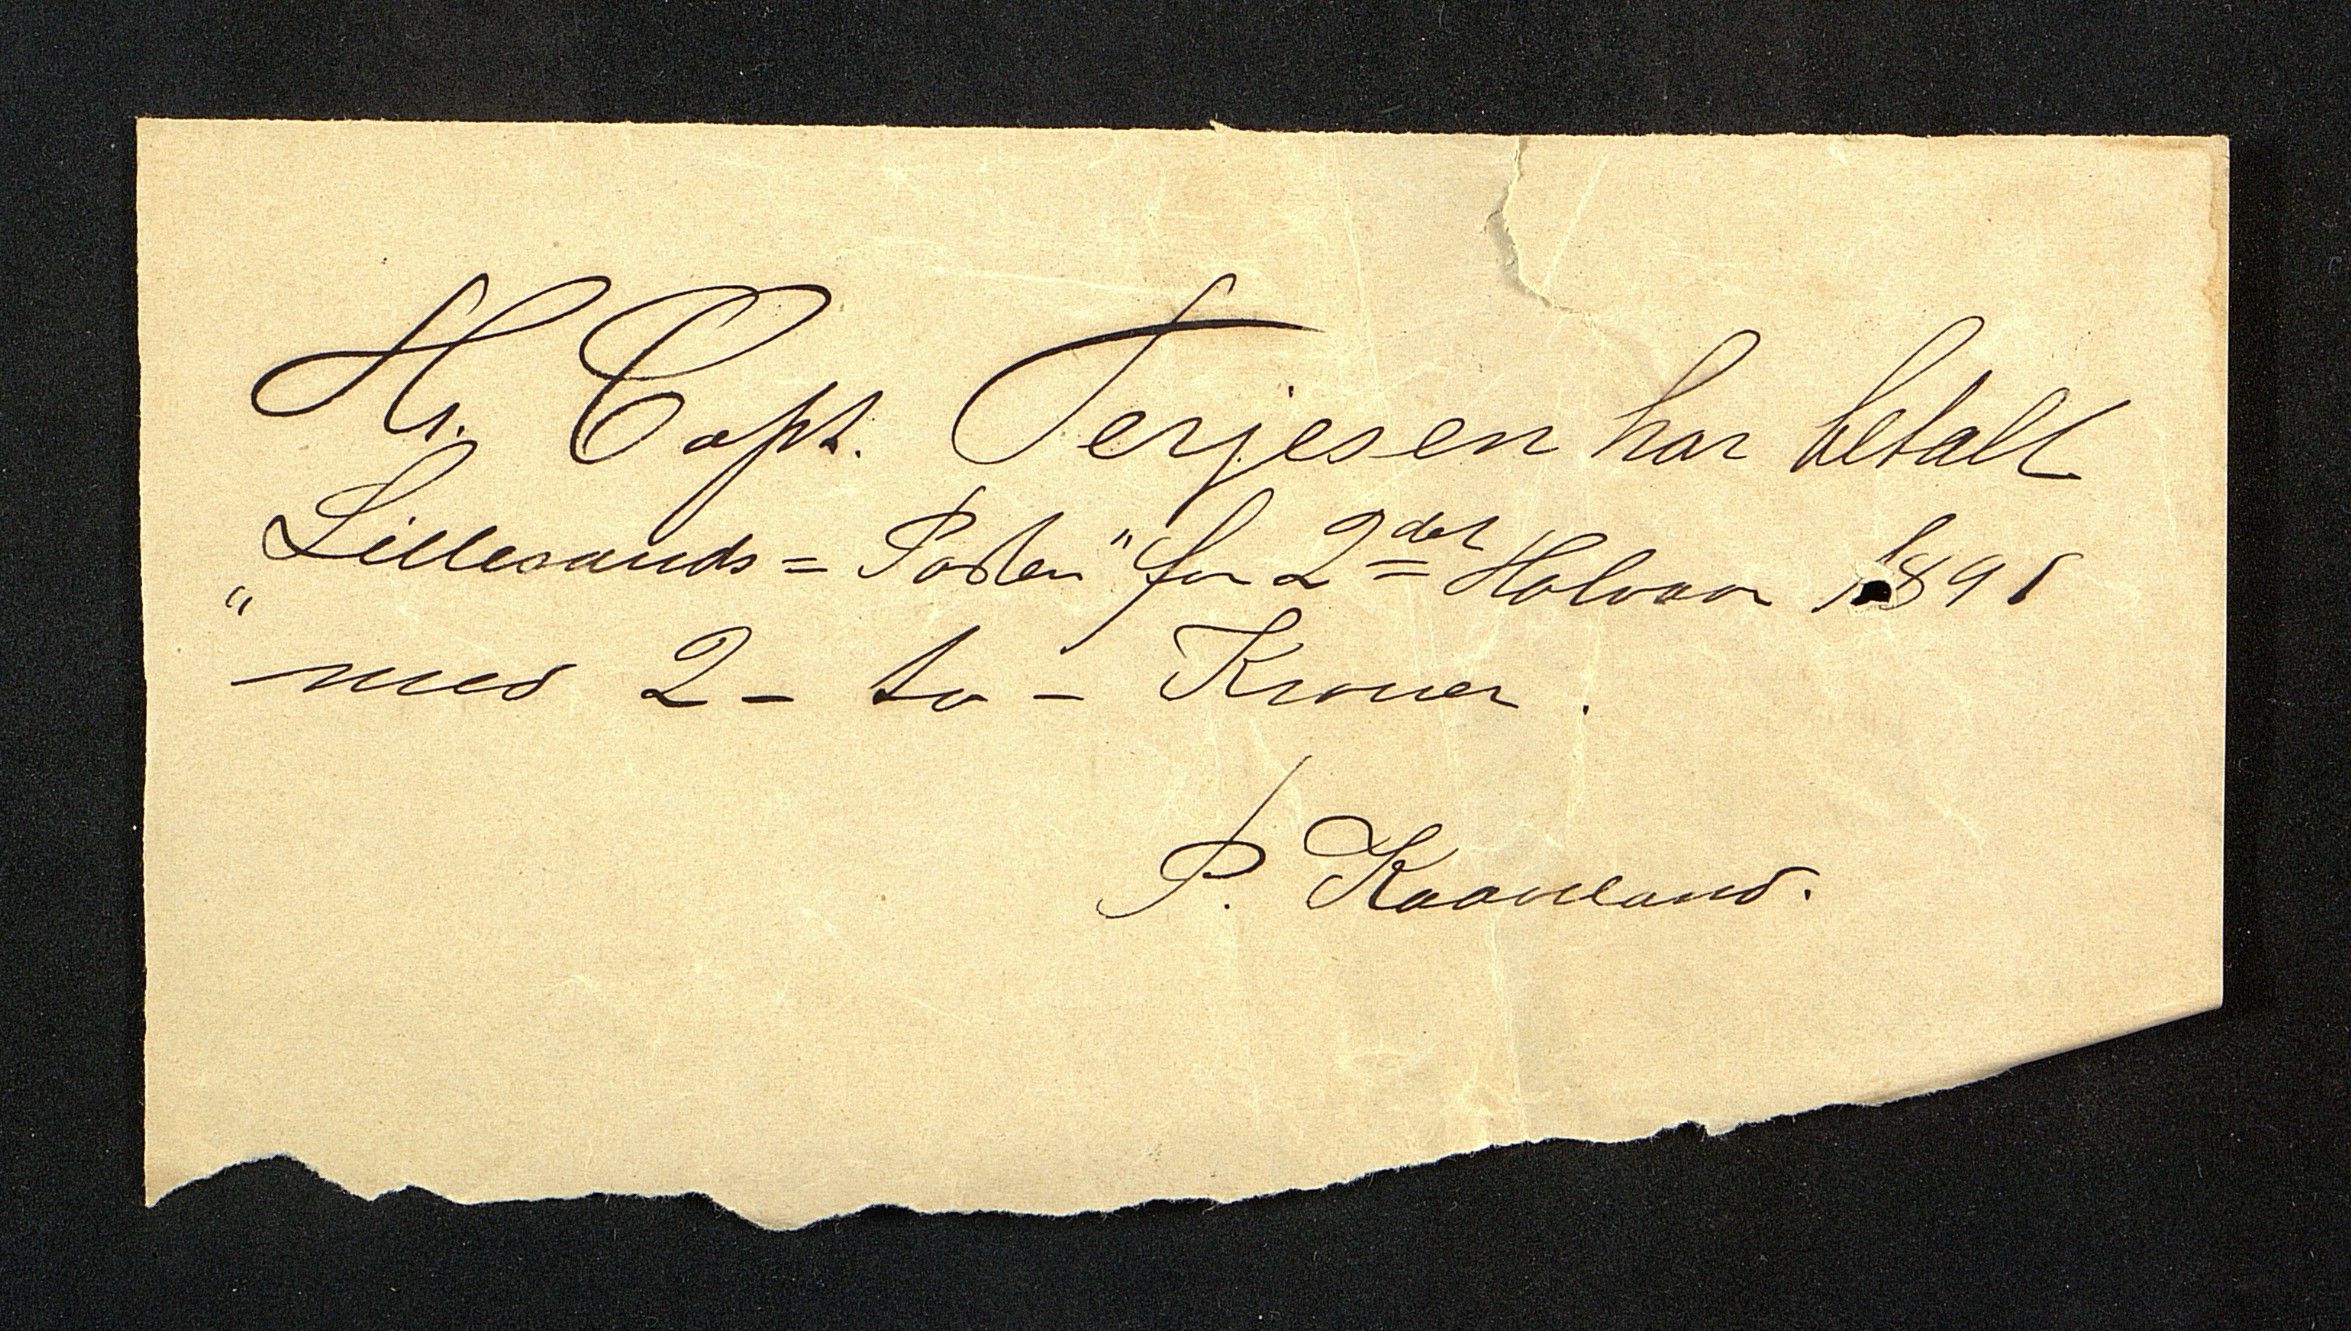 Hr. Capt. Terjesen har betalt
„Lillesands=Posten" for 2det Halvaar 1891
med 2 - to - Kroner.
P. Kaaveland.